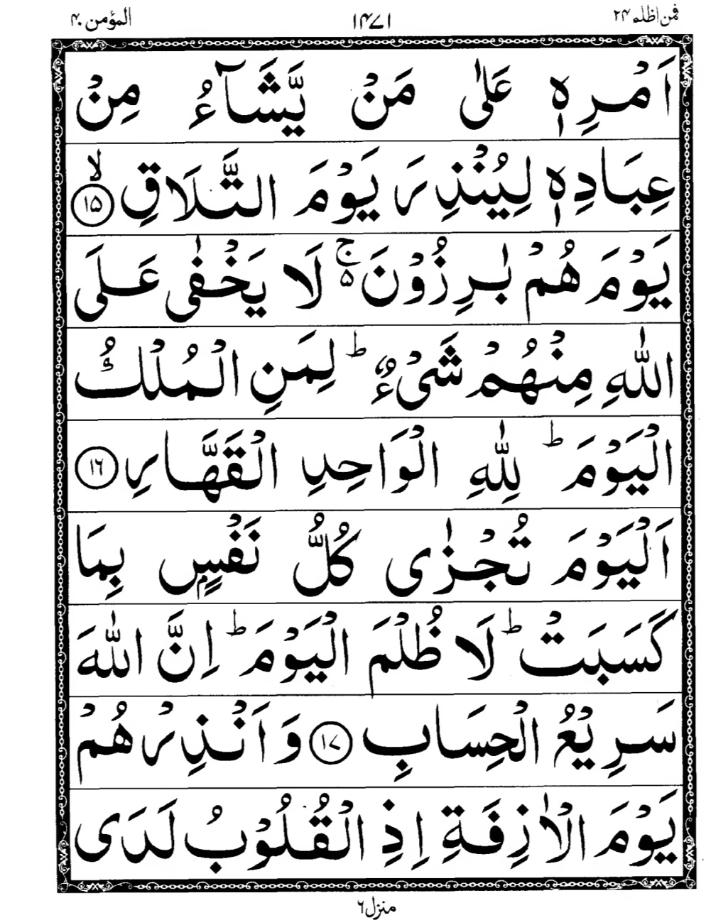 فمن اظلم ۲۴ ۱۴۷۱ المؤمن ۴۰
اَمْرِهٖ عَلٰی مَنْ يَّشَآءُ مِنْ
عِبَادِهٖ لِيُنْذِرَ يَوْمَ التَّلَاقِ ۙ﴿۱۵﴾
يَوْمَ هُمْ بٰرِزُوْنَ ۚ۵ لَا يَخْفٰی عَلَی
اللّٰهِ مِنْهُمْ شَیْءٌ ؕ لِمَنِ الْمُلْكُ
الْيَوْمَ ؕ لِلّٰهِ الْوَاحِدِ الْقَهَّارِ ﴿۱۶﴾
اَلْيَوْمَ تُجْزٰی كُلُّ نَفْسٍۭ بِمَا
كَسَبَتْ ؕ لَا ظُلْمَ الْيَوْمَ ؕ اِنَّ اللّٰهَ
سَرِيْعُ الْحِسَابِ ﴿۱۷﴾ وَاَنْذِرْهُمْ
يَوْمَ الْاٰزِفَةِ اِذِ الْقُلُوْبُ لَدَی
منزل ۶